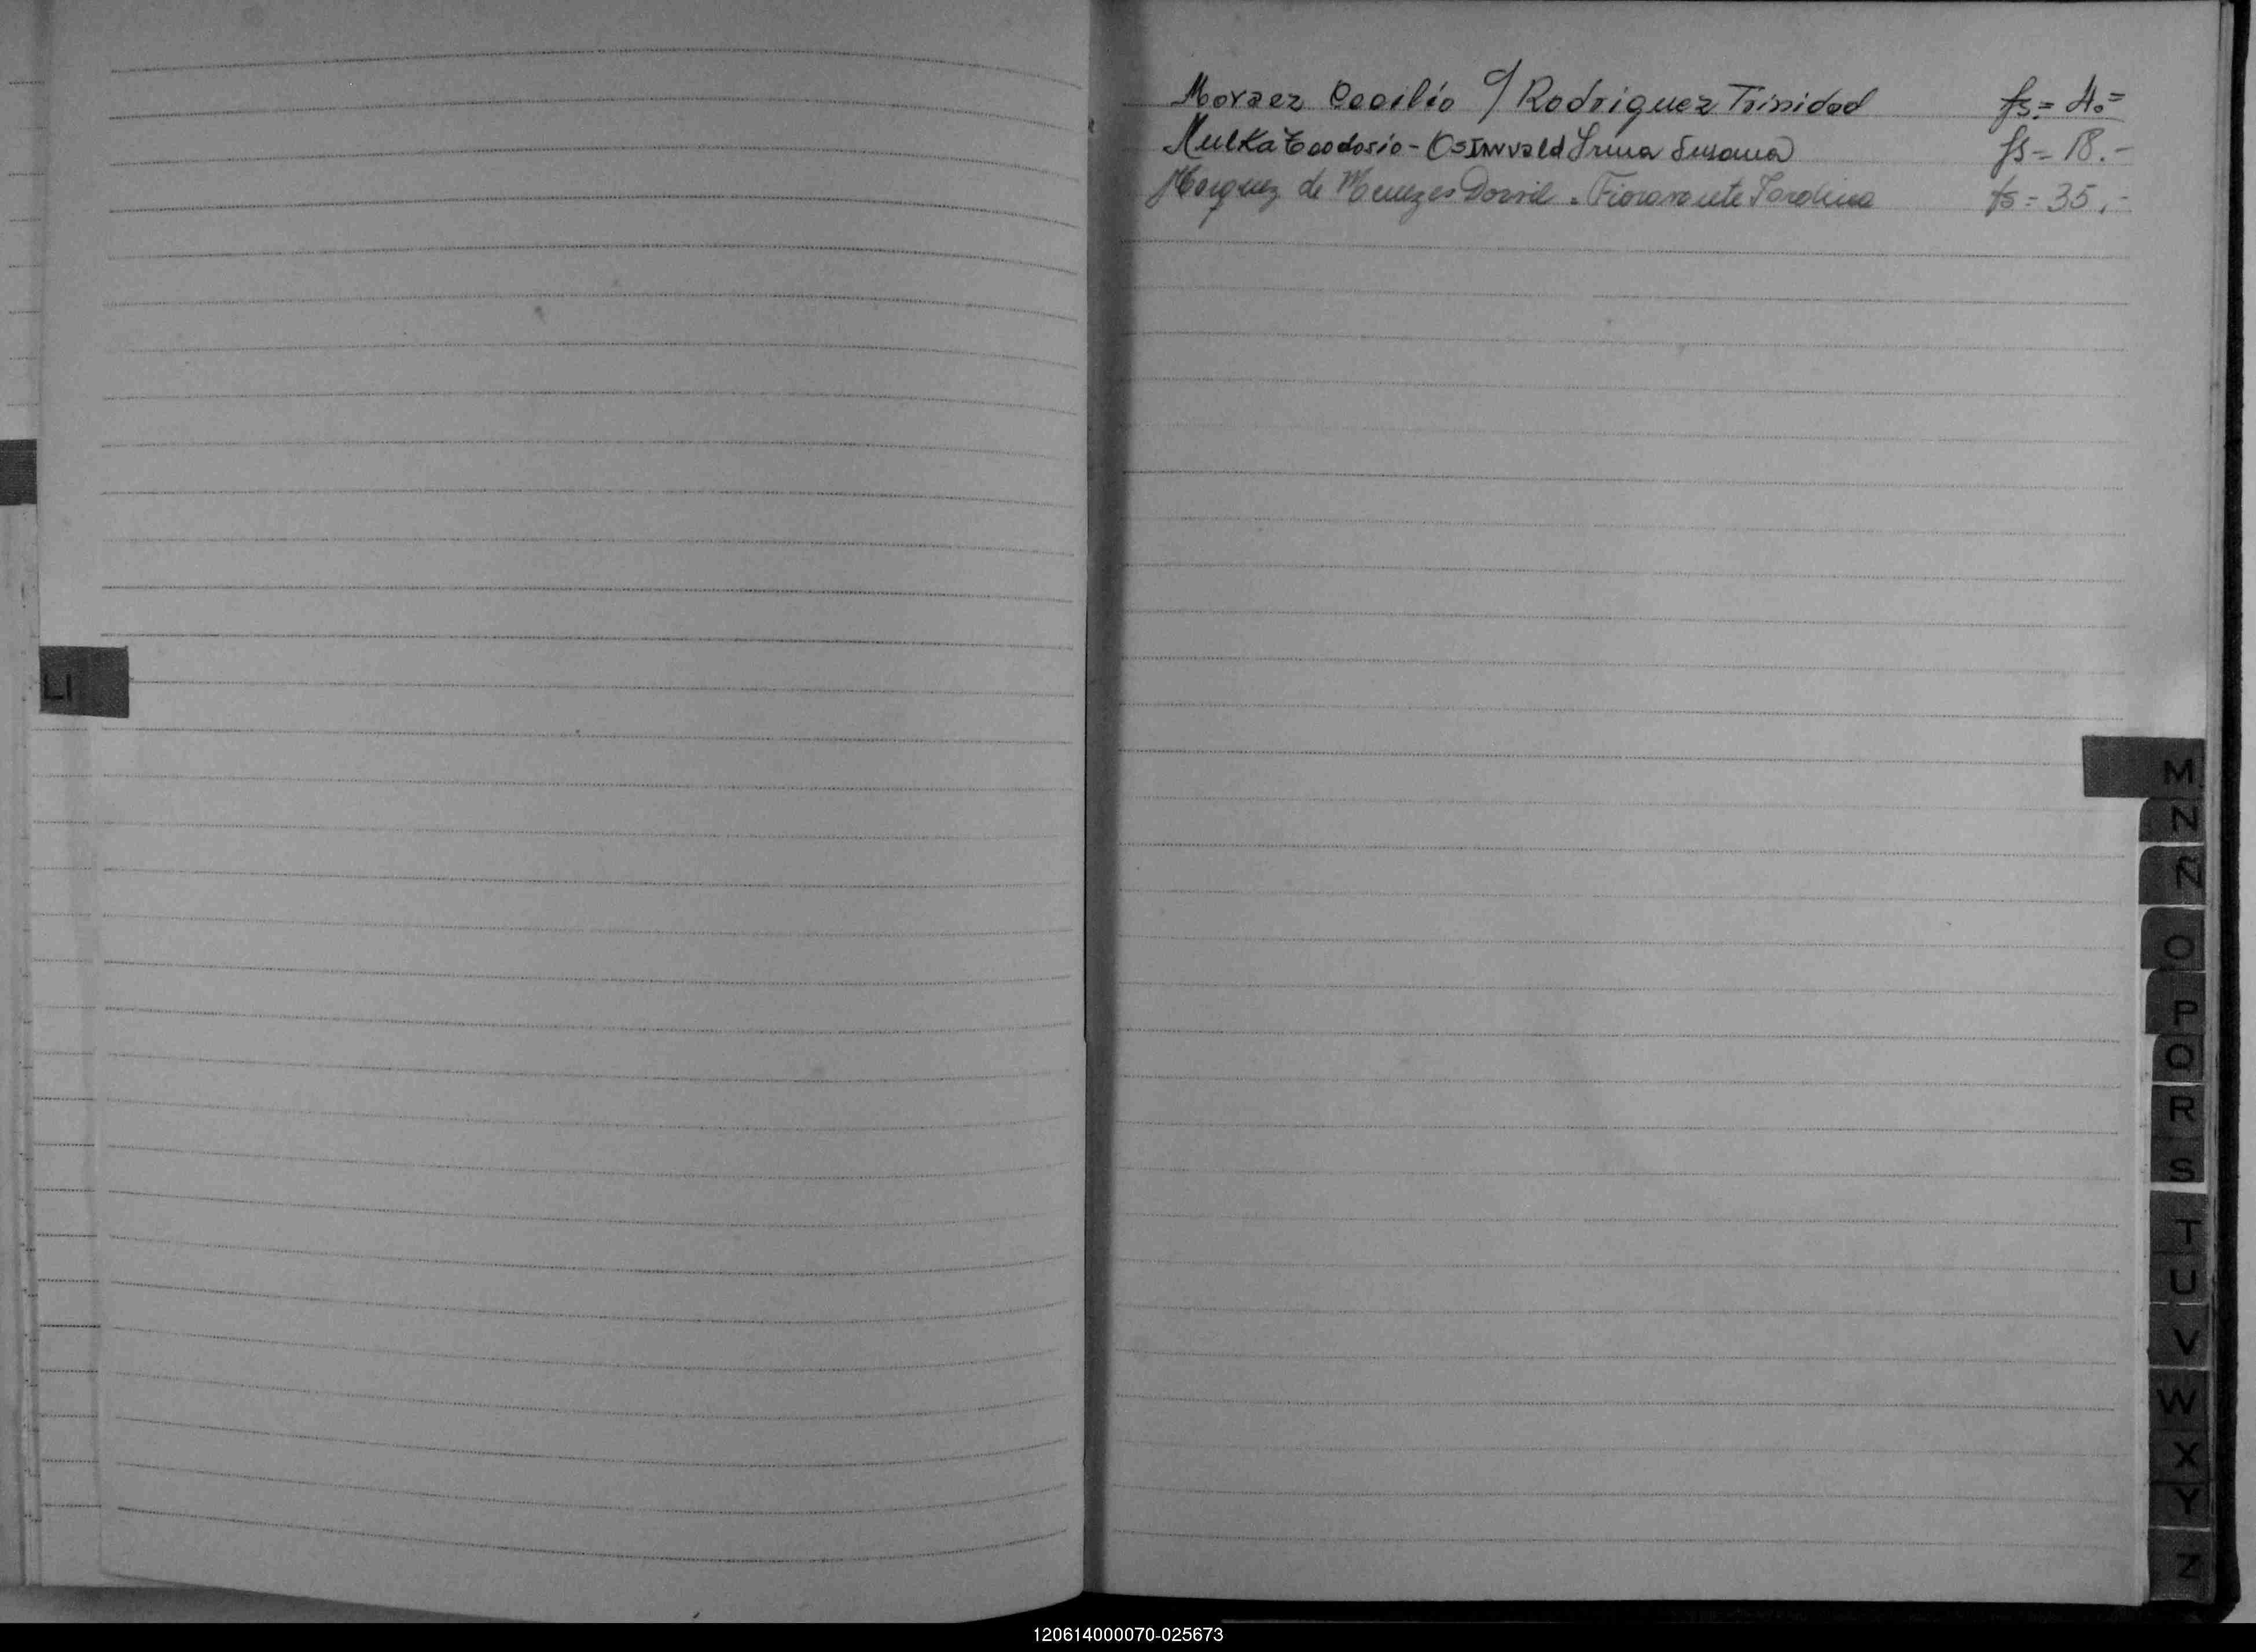 Moraez Cecilio c/ Rodriguez Trinidad fs. = 4.=
Mulka Teodosio - Osinvald Irma Susana fs = 18.-
Marquez de Menezes Dorvil = Fioravante Jardina fs = 35.-
LI
M
N
Ñ
O
P
Q
R
S
T
U
V
W
X
Y
Z
120614000070-025673